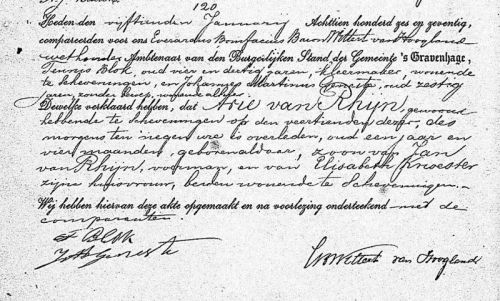 120
Heden den vijftienden Januarij Achttien honderd zes en zeventig,
compareerden voor ons Everardus Bonifacius Baron Wittert van Hoogland
wethouder Ambtenaar van den Burgerlijken Stand der Gemeente 's Gravenhage,
Teunis Blok, oud vier en dertig jaren, kleermaker, wonende
te Scheveningen, en Johannes Martinus oud zestig
jaren, zonder beroep, wonende alhier.
Dewelke verklaard hebben, dat Arie van Rhijn, gewoond
hebbende te Scheveningen op den veertienden dezer, des
morgens ten negen ure is overleden, oud een jaar en
vier maanden, geboren aldaar, zoon van Jan
van Rhijn, voerman, en van Elisabeth Knoester
zijne huisvrouw, beiden wonende te Scheveningen.
Wij hebben hiervan deze akte opgemaakt en na voorlezing onderteekend met de
comparanten.
T Blok
Wittert van Hoogland